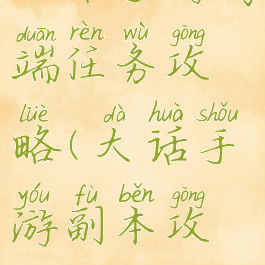 duān rèn wù gōng
端任务攻
lüè dà huà shǒu
略(大话手
yóu fù běn gōng
游副本攻